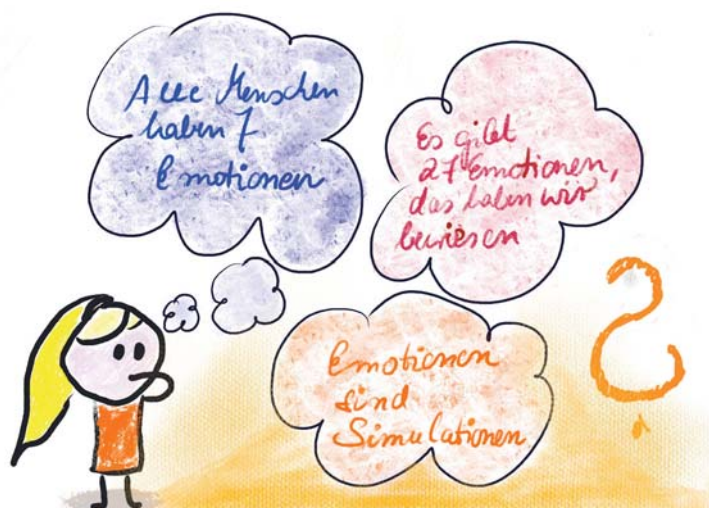 Alle Menschen
haben 7
Emotionen
Es gibt
27 Emotionen,
das haben wir
bewiesen
Emotionen
sind
Simulationen
?